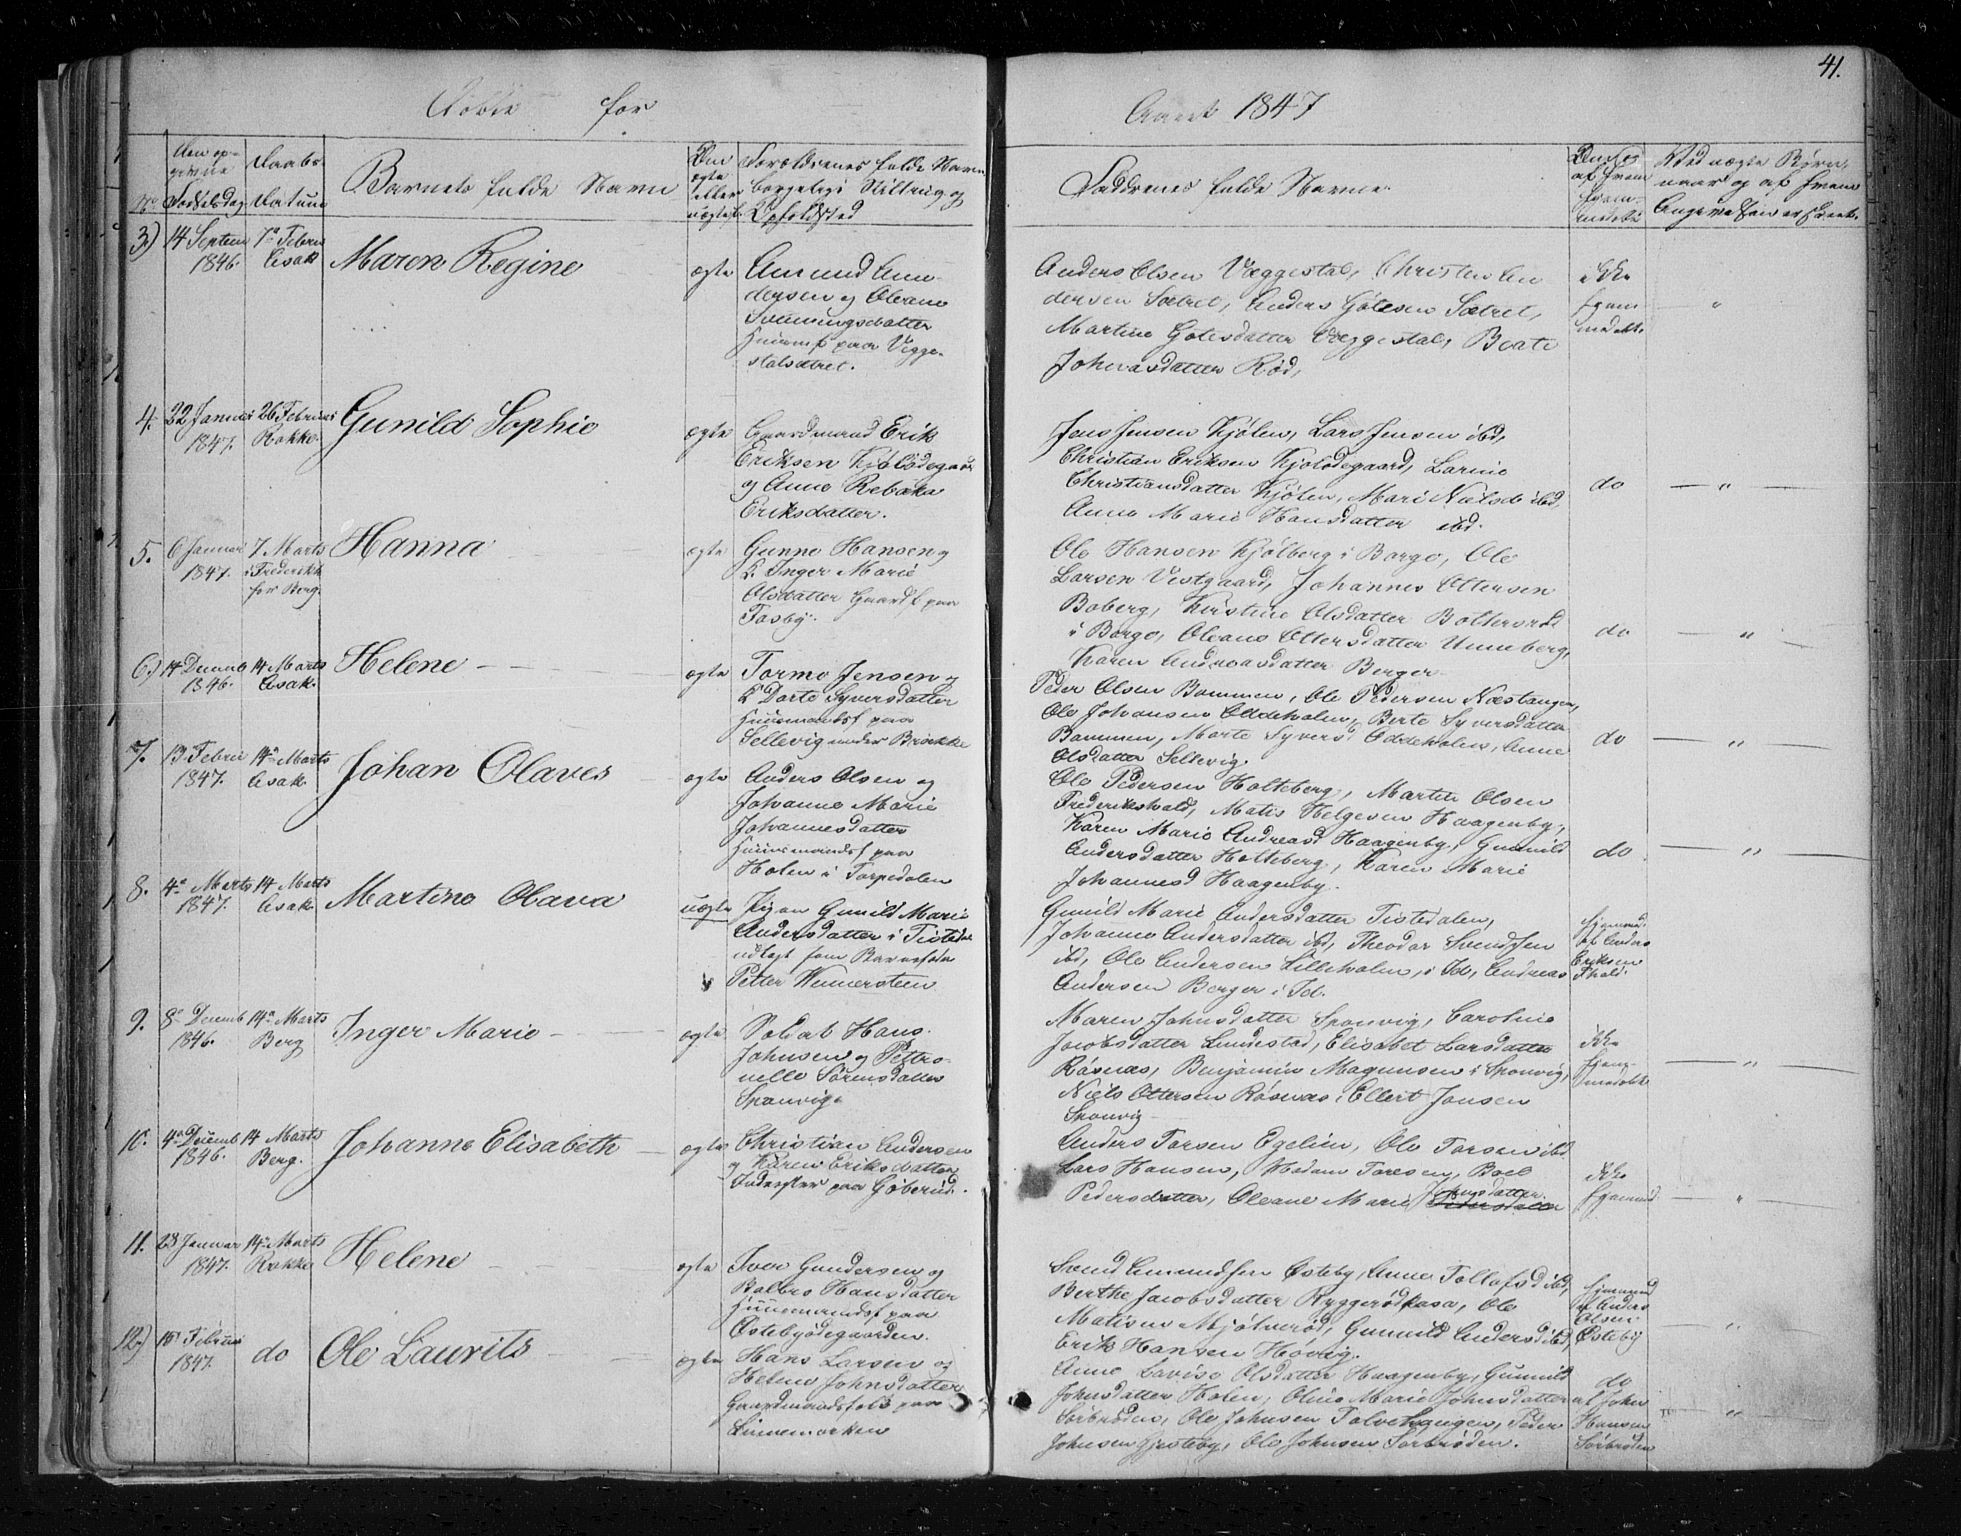 41.
Døbte for
Aaret 1847
No
Den op-
givne
Fødselsdag
Daabs
Datum
Barnets fulde Navn
Om
ægte
eller
uægte f.
Forældrenes fulde Navn
borgerlige Stilling og
Opholdsted
Faddernes fulde Navne
Om og
af hvem
Ved uægte Børn,
naar og af hvem
3) 14 Septem 7de Febru Maren Regine ægte
1846. Asak
Amund Amun-
dersen og Oleane
Svenningsdatter
Huusmf paa Vegge-
stalsætret.
Anders Olsen Væggestal, Christen An
dersen Sætret, Anders Gulesen Sætret,
Martine Gulesdatter Væggestal, Beate
Johnasdatter Rød,
ikke
hjem
med. "
4. 22 Januar 26 Februar Gunild Sophie ægte
1847. Rokke
Gaardmand Erik
Eriksen Kjølsdegaar
og Anne Rebæka
Eriksdatter.
Jens Jensen Kjølen, Lars Jensen ibd,
Christian Eriksen Kjolsdegaard, Larine
Christiansdatter Kjølen, Mari Nielsd ibd,
Anne Marie Hansdatter ibd.
do — " —
5. 6 Januar 7 Marts Hanna ægte
1847. i Frederikh
for Berg.
Gunne Hansen og
K. Inger Marie
Olsdatter Gaardf paa
Fosby.
Ole Hansen Kjølberg i Borge, Ole
Larsen Vestgaard, Johannes Ottersen
Boberg, Kirstine Olsdatter Bolterød
i Borge, Oleane Ottersdatter Unneberg,
Karen Andreasdatter Berger
do — " —
6) 14 Decemb 14 Marts Helene ægte
1846. Asak.
Tormo Jensen og
K Dorte Syversdatter
Huusmandsf paa
Sellevig under Brække
Peder Olsen Bommen, Ole Pedersen Næstangen,
Ole Johansen Oddeholen, Berte Syversdatter
Bommen, Marte Syvers. Oddeholen, Anne
Olsdatter Sellevig.
do — " —
7. 13 Febru 14de Marts Johan Olaves ægte
1847. Asak.
Anders Olsen og
Johanne Marie
Johannesdatter
Huusmandsf paa
Holen i Torpedalen
Ole Pedersen Holteberg, Martin Olsen
Frederikshald, Matis Helgesen Haagenby,
Karen Marie Andreasd Haagenby, Gunnild
Andersdatter Holteberg, Karen Marie
Johannesd Haagenby.
do — " —
8. 4de Marts 14 Marts Martine Olava uægte
1847. Asak
Pigen Gunild Marie
Andersdatter i Tistedal
udlagt som Barnefader
Petter Wennersteen
Gunild Marie Andersdatter Tistedalen,
Johanne Andersdatter ibd, Theodor Svendsen
ibd, Ole Andersen Lilleholen, i Id, Andreas
Andersen Berger i Id.
hjemmed.
af Anders
Eriksen
Fhald.
9. 8de Decemb 14de Marts Inger Marie ægte
1846. Berg
Soldat Hans
Johnsen og Pettro-
nelle Sørensdatter
Sponvig.
Maren Johnsdatter Sponvig, Caroline
Jacobsdatter Lundestad, Elisabet Larsdatter
Røsnæs, Benjamin Magnusen i Sponvig,
Niels Ottersen Røsnæs, Ellert Jonsen
Sponvig
ikke
hjem-
medøbt — " —
10. 4de Decemb 14 Marts Johanne Elisabeth ægte
1846. Berg.
Christian Andersen
og Karen Eriksdatter
Inderster paa Gøberød.
Anders Torsen Egelien, Ole Torsen ibd.
Lars Hansen, Madam Toresen, Boel
Pedersdatter, Oleane Marie Johnsdatter
Pedersdatter
ikke
hjemmed. — " —
11. 23 Januar 14de Marts Helene ægte
1847. Rokke
Iver Gundersen og
Bolbro Hansdatter
Huusmandsf paa
Østebyødegaarden.
Svend Amundsen Østeby, Anne Tollofsd ibd,
Berthe Jacobsdatter Ryggerødkasa, Ole
Matisen Mjølnerød, Gunnild Andersd ibd,
Erik Hansen Høvig.
hjemmed
af Anders
Olsen
Østeby — " —
12.) 10 Februar do Ole Laurits ægte
1847.
Hans Larsen og
Helene Johnsdatter
Gaardmandsfolk paa
Linnemarken
Anne Lovise Olsdatter Haagenby, Gunnild
Johnsdatter Holen, Oline Marie Johnsdatter
Sørbrøden, Ole Johnsen Tolvehaugen, Peder
Johnsen Gjesteby, Ole Johnsen Sørbrøden.
do
af John
Hansen
Sørbrøden — " —